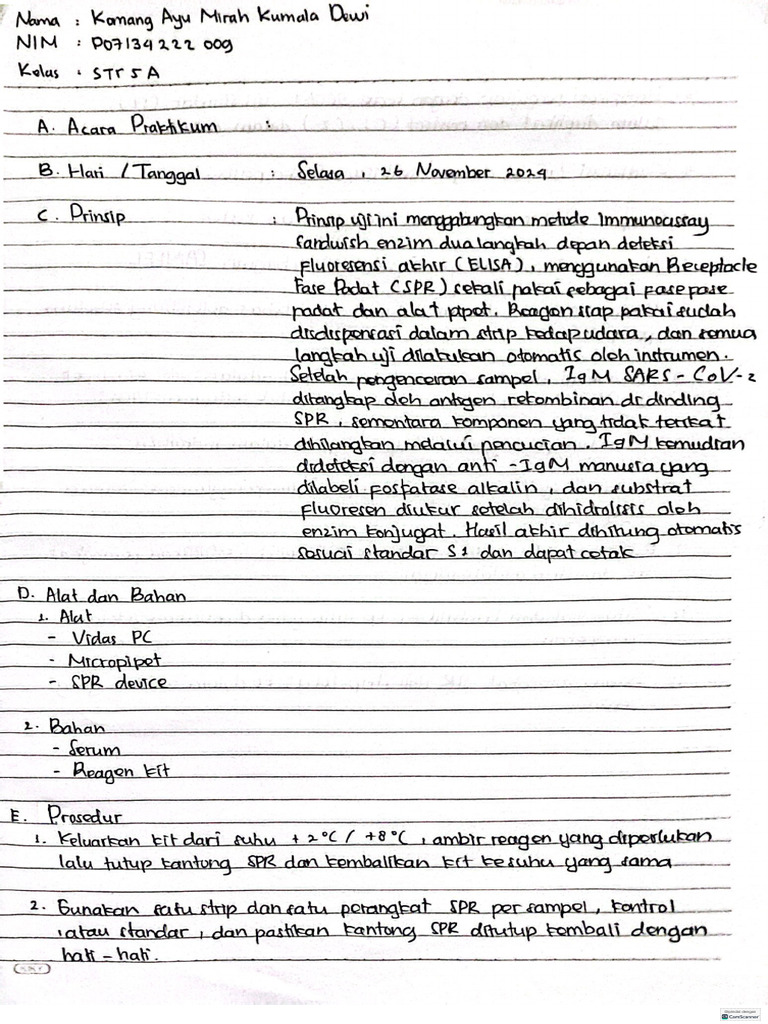 Nama : Komang Ayu Mirah Kumala Dewi
NIM : P07134222009
Kelas : STR 5A
A. Acara Praktikum :
B. Hari / Tanggal : Selasa, 26 November 2024
C. Prinsip : Prinsip uji ini menggabungkan metode Immunoassay
sandwish enzim dua langkah depan deteksi
fluoresensi akhir (ELISA), menggunakan Receptacle
Fase Padat (SPR) sekali pakai sebagai fase pase
padat dan alat pipet. Reagen siap pakai sudah
didispensasi dalam strip kedap udara, dan semua
langkah uji dilakukan otomatis oleh instrumen.
Setelah pengenceran sampel, IgM SARS-CoV-2
ditangkap oleh antigen rekombinan di dinding
SPR, sementara komponen yang tidak terikat
dihilangkan melalui pencucian. IgM kemudian
dideteksi dengan anti-IgM manusia yang
dilabeli fosfatase alkalin, dan substrat
fluoresen diukur setelah dihidrolisis oleh
enzim konjugat. Hasil akhir dihitung otomatis
sesuai standar S1 dan dapat cetak
D. Alat dan Bahan
1. Alat
- Vidas PC
- Micropipet
- SPR device
2. Bahan
- Serum
- Reagen kit
E. Prosedur
1. Keluarkan kit dari suhu +2°C / +8°C, ambir reagen yang diperlukan
lalu tutup kantong SPR dan kembalikan kit kesuhu yang sama
2. Gunakan satu strip dan satu perangkat SPR per sampel, kontrol
,atau standar, dan pastikan kantong SPR ditutup kembali dengan
hati-hati.
CamScanner